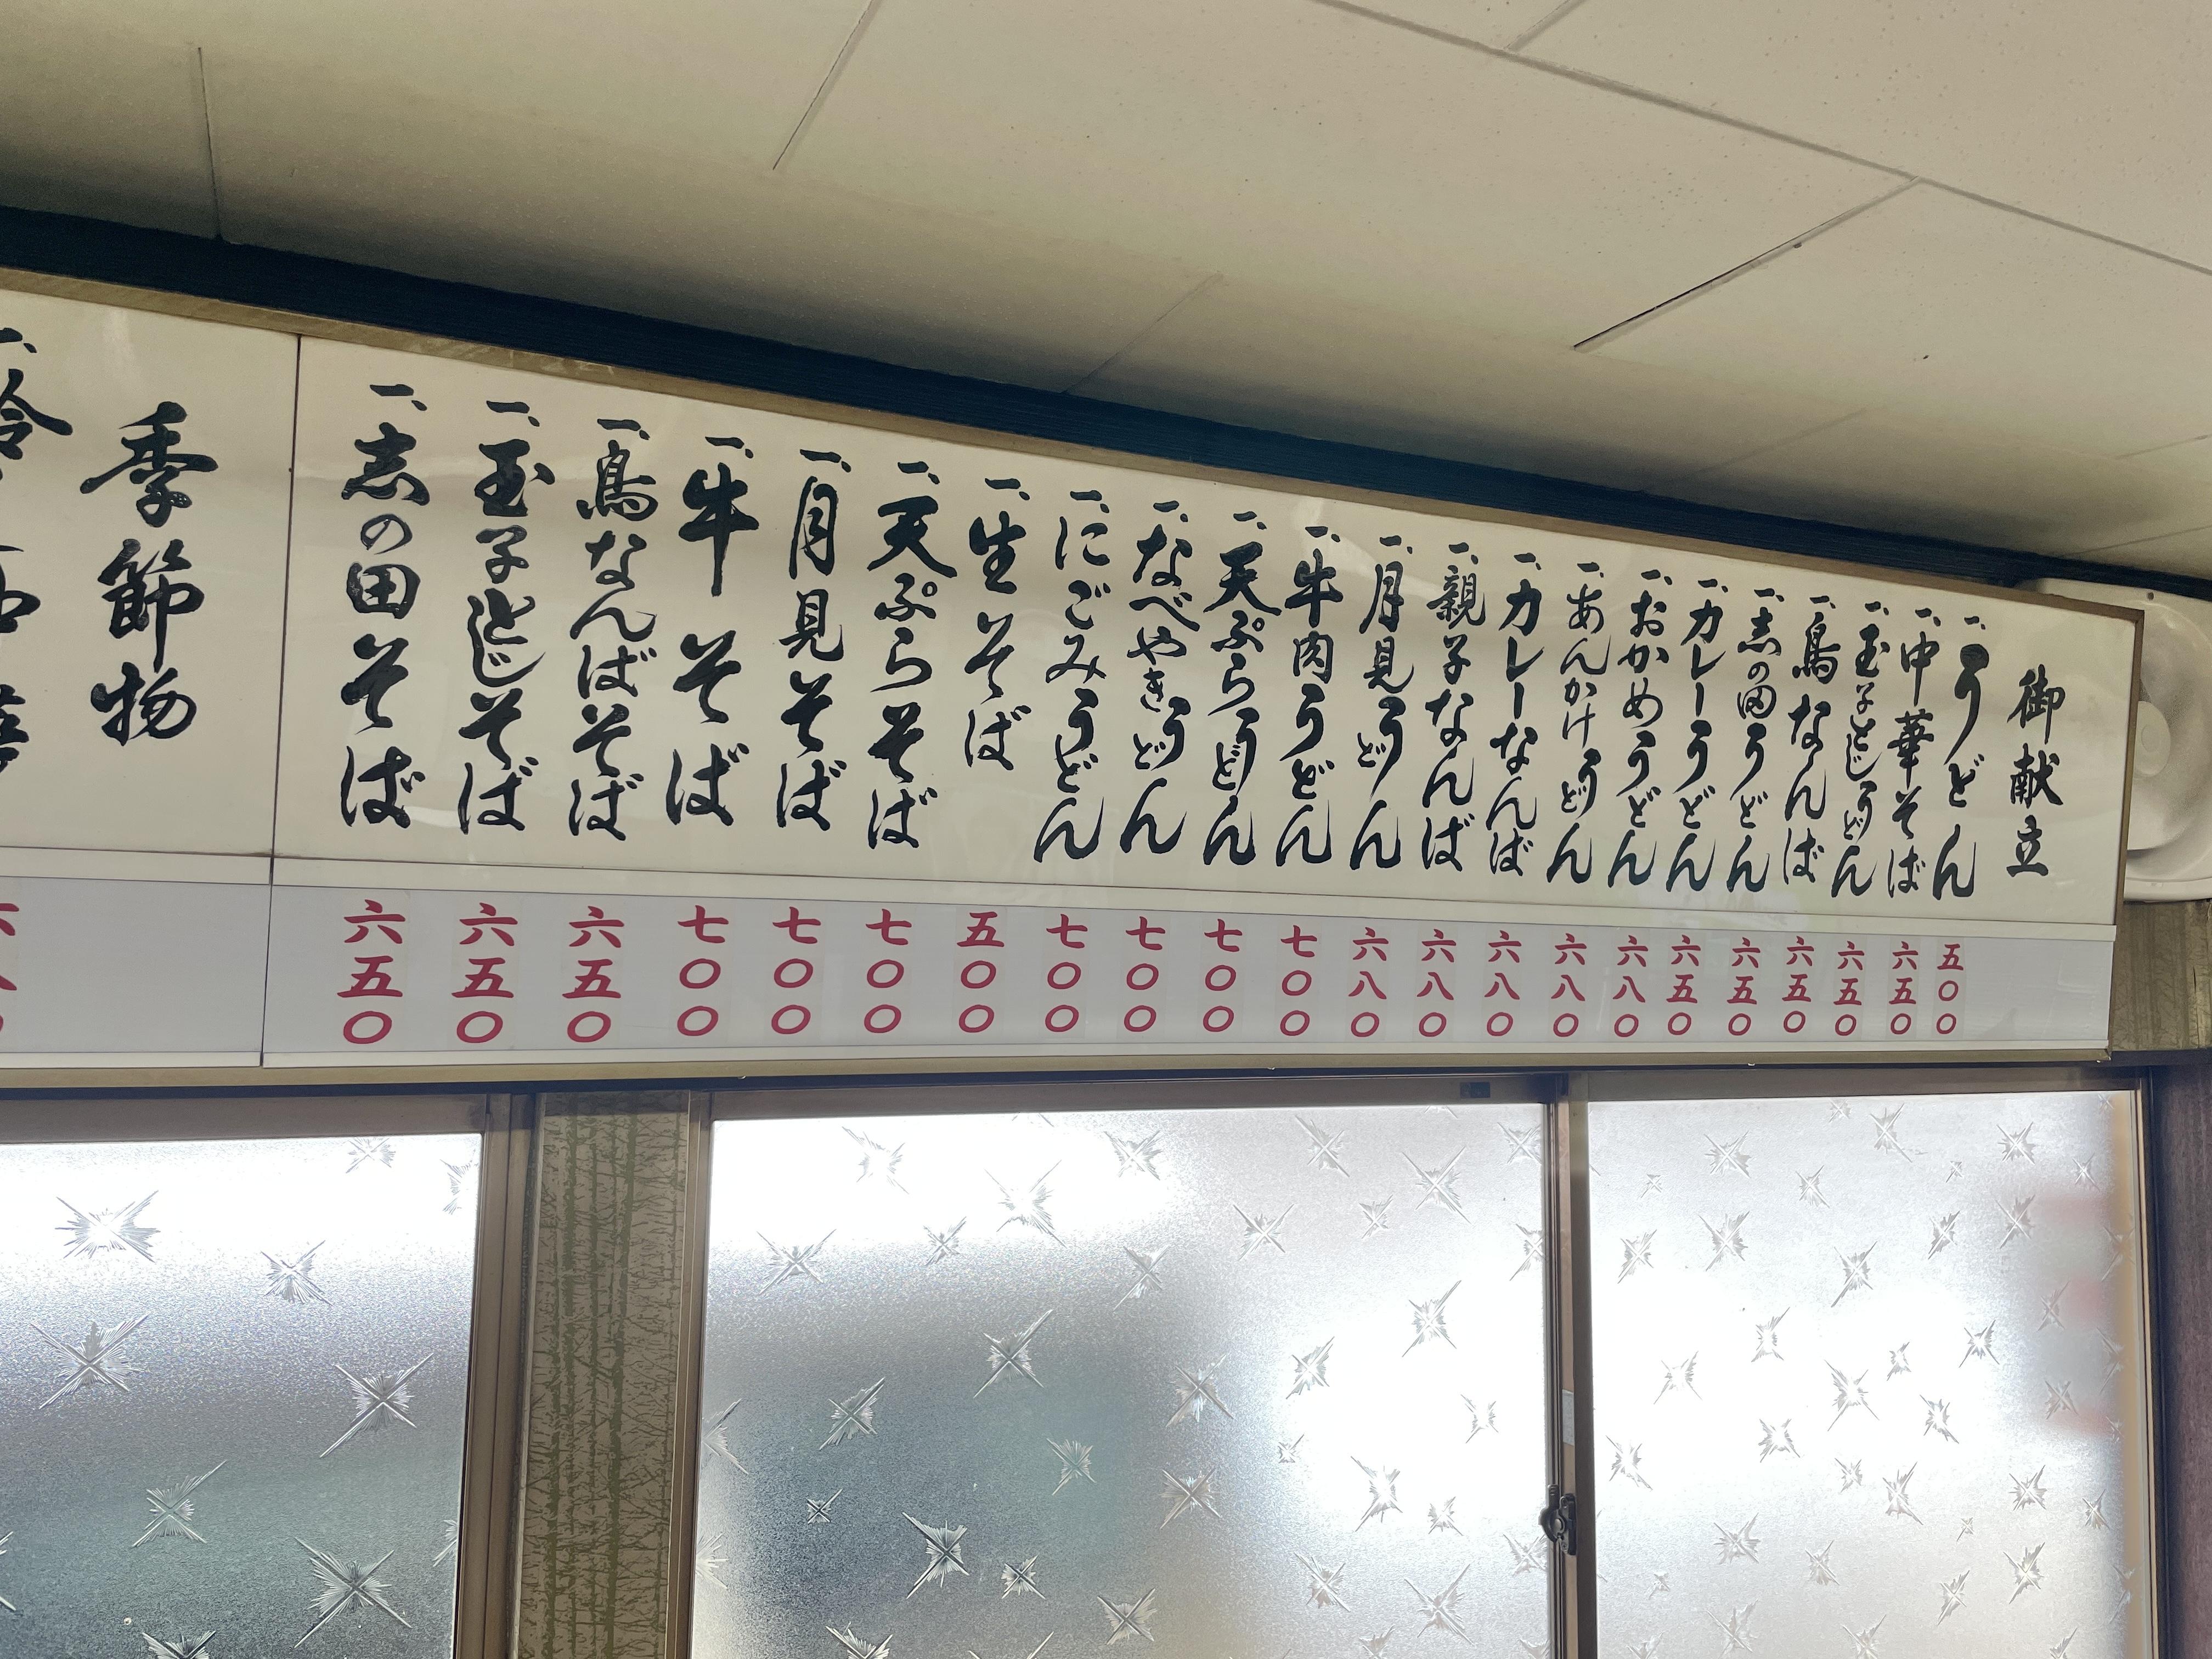 御献立
一、うどん
五〇〇
一、中華そば
六五〇
一、玉子とじうどん
六五〇
一、鳥なんば
六五〇
一、志の田うどん
六五〇
一、カレーうどん
六五〇
一、おかめうどん
六八〇
一、あんかけうどん
六八〇
一、カレーなんば
六八〇
一、親子なんば
六八〇
一、月見うどん
六八〇
一、牛肉うどん
七〇〇
一、天ぷらうどん
七〇〇
一、なべやきうどん
七〇〇
一、にごみうどん
七〇〇
一、生そば
五〇〇
一、天ぷらそば
七〇〇
一、月見そば
七〇〇
一、牛そば
七〇〇
一、鳥なんばそば
六五〇
一、玉子とじそば
六五〇
一、志の田そば
六五〇
季節物